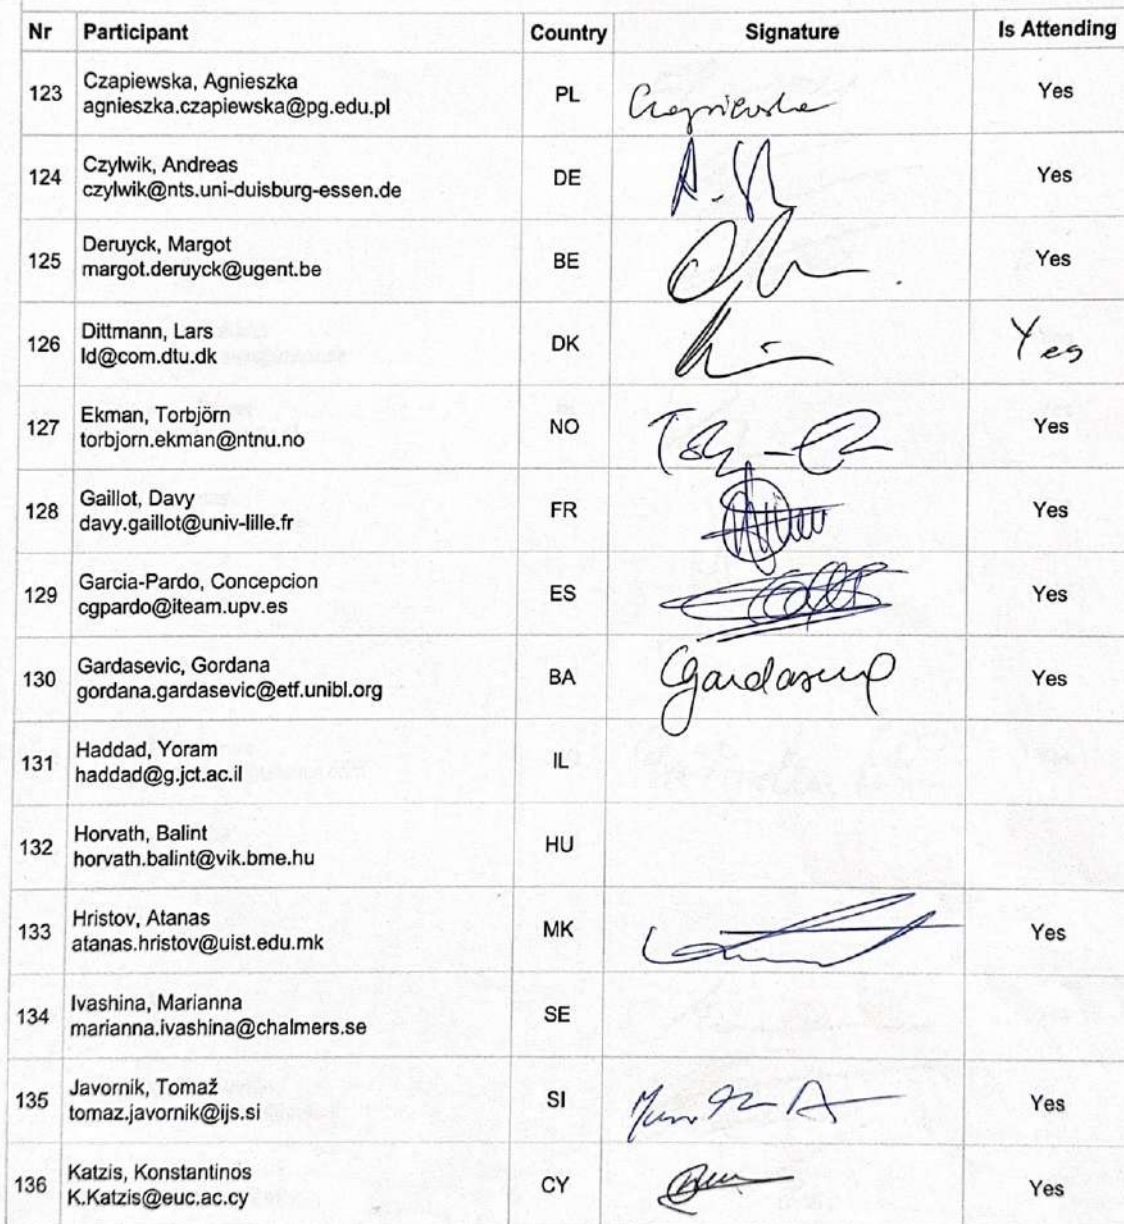 Nr Participant Country Signature Is Attending
123 Czapiewska, Agnieszka
agnieszka.czapiewska@pg.edu.pl PL Czapiewska Yes
124 Czylwik, Andreas
czylwik@nts.uni-duisburg-essen.de DE Yes
125 Deruyck, Margot
margot.deruyck@ugent.be BE Yes
126 Dittmann, Lars
ld@com.dtu.dk DK Yes
127 Ekman, Torbjörn
torbjorn.ekman@ntnu.no NO Yes
128 Gaillot, Davy
davy.gaillot@univ-lille.fr FR Yes
129 Garcia-Pardo, Concepcion
cgpardo@iteam.upv.es ES Yes
130 Gardasevic, Gordana
gordana.gardasevic@etf.unibl.org BA Yes
131 Haddad, Yoram
haddad@g.jct.ac.il IL
132 Horvath, Balint
horvath.balint@vik.bme.hu HU
133 Hristov, Atanas
atanas.hristov@uist.edu.mk MK Yes
134 Ivashina, Marianna
marianna.ivashina@chalmers.se SE
135 Javornik, Tomaž
tomaz.javornik@ijs.si SI Yes
136 Katzis, Konstantinos
K.Katzis@euc.ac.cy CY Yes